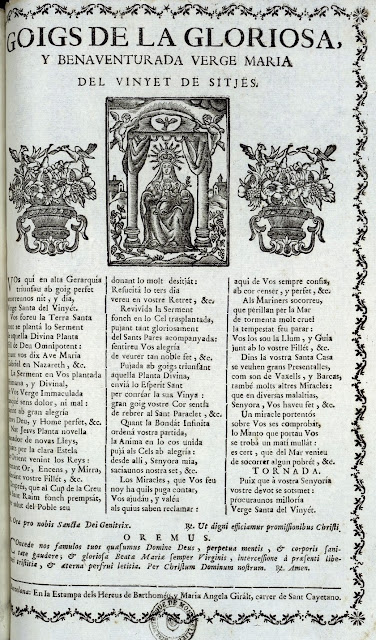 GOIGS DE LA GLORIOSA,
Y BENAVENTURADA VERGE MARIA
DEL VINYET DE SITJES.
VOs qui en alta Gerarquia
triunfau ab goig perfet
nit, y dia,
Verge Santa del Vinyét.
Vos foreu la Terra Santa
se plantá lo Serment
aquella Divina Planta
de Deu Omnipotent:
vos dix Ave Maria
Gabriel en Nazareth, &c.
lo Serment en Vos plantada
y Divinal,
Vos Verge Immaculada
sens dolor, ni mal:
ab gran alegria
Deu, y Home perfet, &c.
Jesvs Planta novella
de novas Lleys,
per la clara Estela
venint los Reys:
Or, Encens, y Mirra,
vostre Fillét, &c.
aprés, que al Cup de la Creu
Raim fonch prempsát,
del Poble seu
donant lo molt desitját:
Resuscitá lo ters dia
vereu en vostre Retret, &c.
Revivida la Serment
fonch en lo Cel trasplantada,
pujant tant gloriosament
dels Sants Pares acompanyada:
sentireu Vos alegria
de veurer tan noble fet, &c.
Pujada ab goigs triunfant
aquella Planta Divina,
enviá lo Esperit Sant
per conrear la sua Vinya:
gran goig vostre Cor sentia
de rebrer al Sant Paraclet, &c.
Quant la Bondát Infinita
ordená vostra partida,
la Anima en lo cos unida
pujá als Cels ab alegria:
desde allí, Senyora mia,
saciaunos nostra set, &c.
Los Miracles, que Vos feu
noy ha quils puga contar,
Vos ajudáu, y valéu
als quius saben reclamar:
aqui de Vos sempre confia,
ab cor sencer, y perfet, &c.
Als Mariners socorreu,
que perillan per la Mar
de tormenta molt cruel
la tempestat feu parar:
Vos los sou la Llum, y Guia
junt ab lo vostre Fillét, &c.
Dins la vostra Santa Casa
se veuhen grans Presentalles,
com son de Vaxells, y Barcas,
també molts altres Miracles:
que en diversas malaltias,
Senyora, Vos haveu fet, &c.
Un miracle portentós
sobre Vos ses comprobát,
lo Manto que portau Vos
se trobá un matí mullat:
es cert, que del Mar venieu
de socorrer algun pobret, &c.
TORNADA.
Puix que à vostra Senyoria
vostre devot se sotsmet:
procuraunos milloria
Verge Santa del Vinyét.
Ora pro nobis Sancta Dei Genitrix. ℟. Ut digni efficiamur promissionibus Christi.
OREMUS.
COncede nos famulos tuos quæsumus Domine Deus, perpetua mentis, & corporis sani-
tate gaudere; & gloriosa Beatæ Mariæ semper Virginis, intercessione à præsenti libe-
tristitia, & æterna perfrui letitia. Per Christum Dominum nostrum. ℟. Amen.
En la Estampa dels Hereus de Barthoméu, y Maria Angela Giralt, carrer de Sant Cayetano.